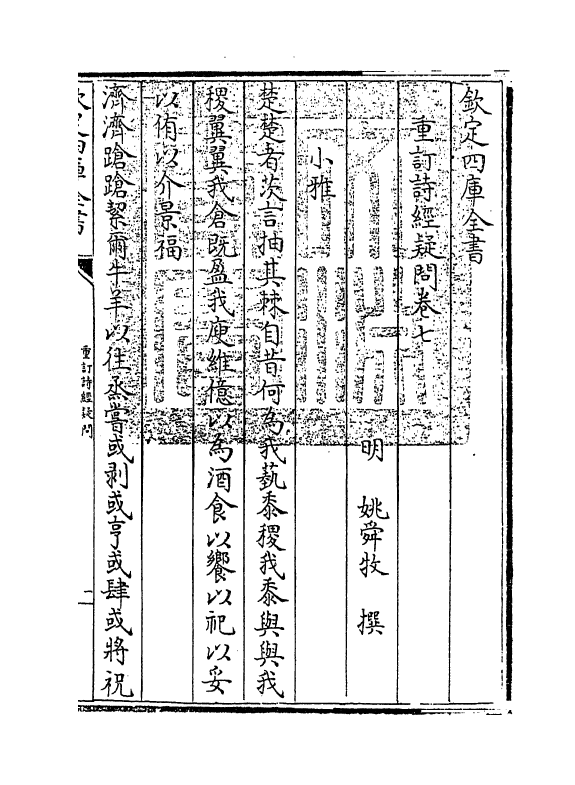 欽定四庫全書
重訂詩經疑問卷七
明 姚舜牧 撰
小雅
楚楚者茨言抽其棘自昔何為我蓺黍稷我黍與與我
稷翼翼我倉既盈我庾維億以為酒食以饗以祀以妥
以侑以介景福
濟濟蹌蹌絜爾牛羊以往烝嘗或剥或亨或肆或將祝
欽定四庫全書
重訂詩經疑問